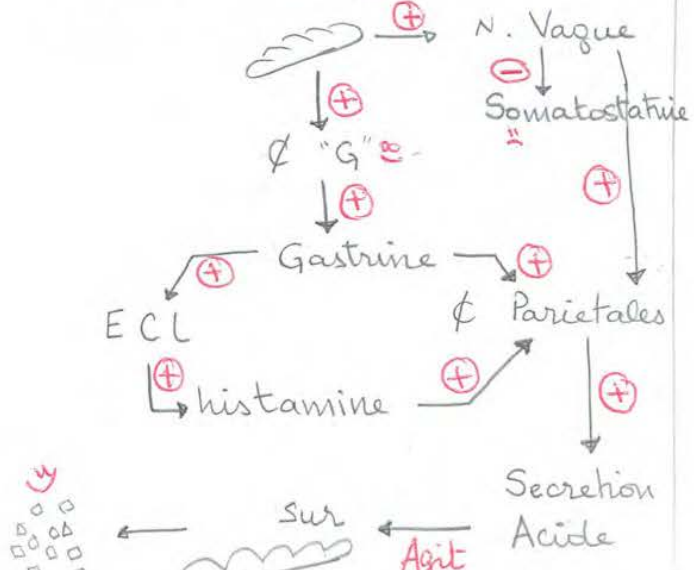 + N. Vague
-
+ Somatostatine
₵ "G"
+ +
Gastrine
+ +
ECL ₵ Parietales
+ + +
histamine
Secretion
sur Acide
Agit